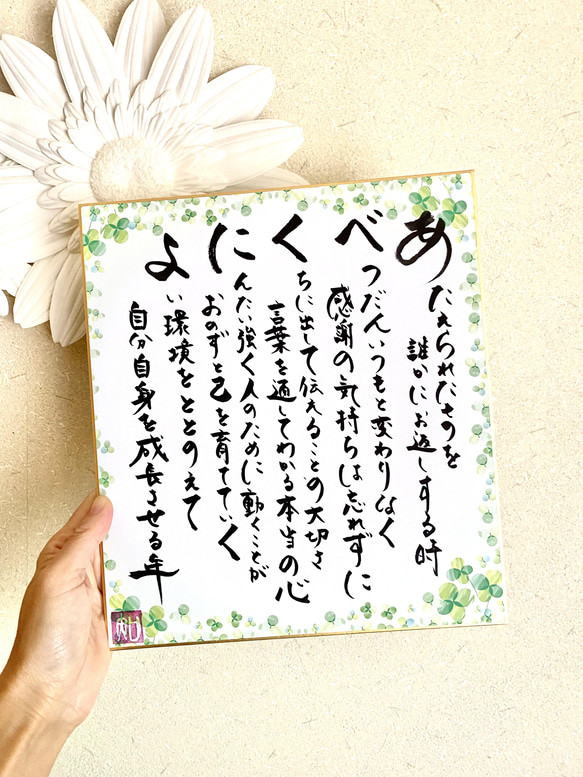 あたえられたものを
誰かにお返しする時
べつだんいつもと変わりなく
感謝の気持ちは忘れずに
くちに出して伝えることの大切さ
言葉を通してわかる本当の心
にんたい強く人のために動くことが
おのずと己を育てていく
よい環境をととのえて
自分自身を成長させる年